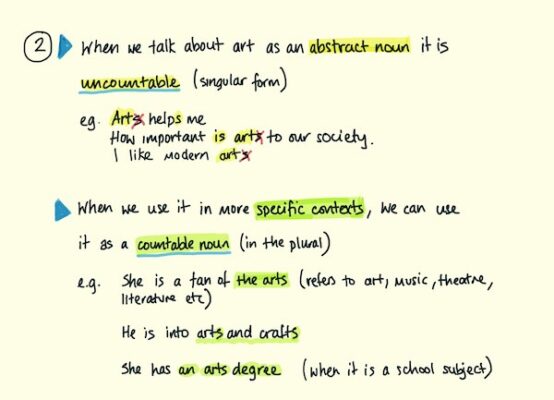 2 When we talk about art as an abstract noun it is
uncountable (singular form)
eg. Arts helps me
How important is arts to our society.
I like modern arts
When we use it in more specific contexts, we can use
it as a countable noun (in the plural)
e.g. She is a fan of the arts (refers to art, music, theatre,
literature etc)
He is into arts and crafts
She has an arts degree (when it is a school subject)